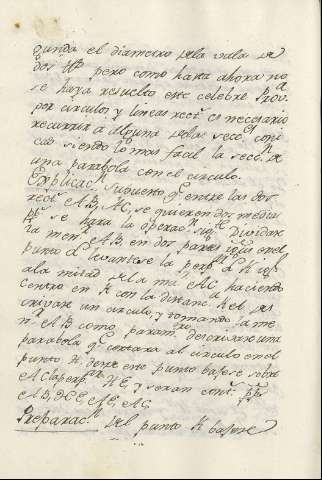 dunda el diametro dela vala de
dos H.s pero como hasta ahora no
se haya resuelto este celebre Prov.a
por circulos, y lineas rect.s es necesario
recurrir a alguna delas secc.s coni
cas siendo lo mas facil la secc.n de
una parabola con el circulo.
Explicac.n Supuesto q.e entre las dos
rect.s AB, AC, se quieren dos medias
pp.s se hara la operac.n sig.te Dividase
la men.r AB, en dos partes igu.s en el
punto levantese la perp.r K igl.
ala mitad dela ma.r AC haciendo
centro en K con la distanc.a el des
crivase un circulo, y tomando la me
n.r AB como param.tro descrivase una
parabola q.e cortara al circulo en el
punto H. desde este punto bajese sobre
AC la perp.r HE, y seran cont.s pp.s
AB, HE, AE, AC
Preparac.n Del punto K bajese